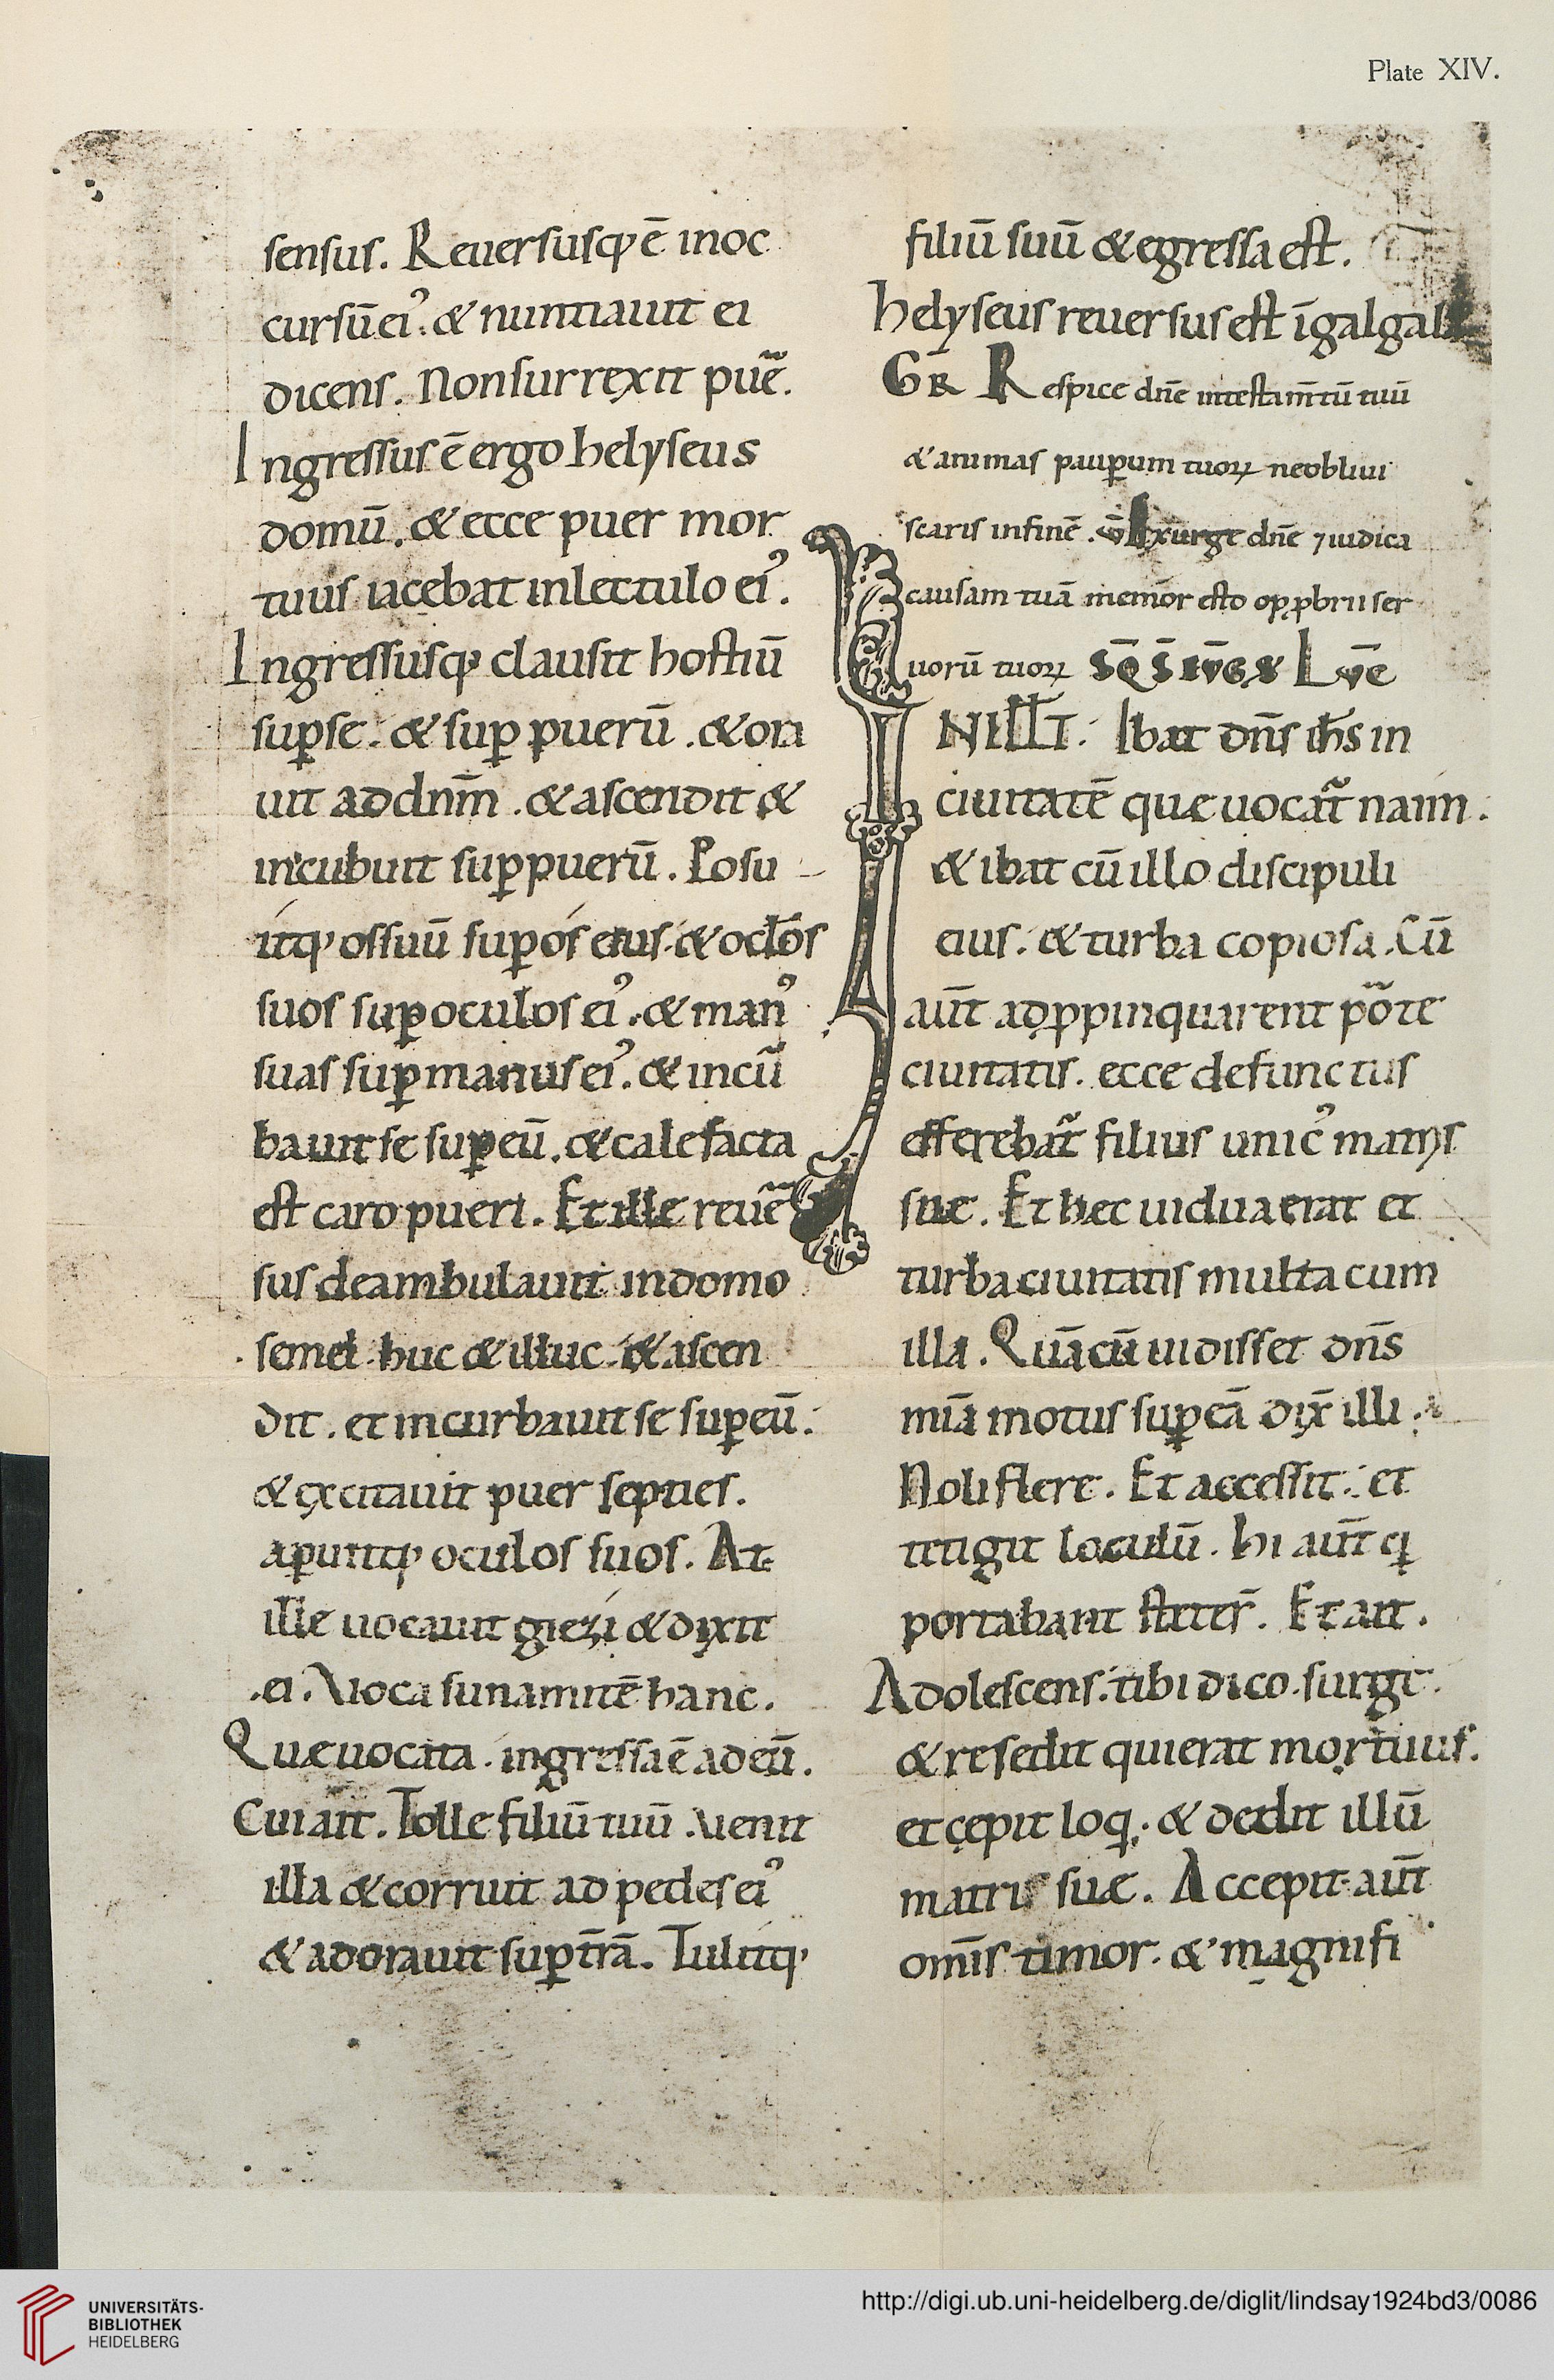 Plate XIV.
sensus. Reuersusq; ē inoc
cursū ei⁹. & nuntiauit ei
dicens. Nonsurrexit puẽ.
Ingressus ē ergo helyseus
domū. & ecce puer mor
tuus iacebat inlectulo ei⁹.
Ingressusq; clausit hostiū
suꝑse. & suꝑ puerū. & ora
uit addnm̄. & ascendit &
incubuit suꝑpuerū. Posu
itq; ossuū suꝑós eius. & ocłos
suos suꝑoculos ei⁹. & man⁹
suas suꝑmanus ei⁹. & incũ
bauit se suꝑeū. & calefacta
est caro pueri. Et ille reuẽ
sus deambulauit indomo
semel huc & illuc. & ascen
dit. et incurbauit se suꝑeū.
& excitauit puer septies.
aꝑuitq; oculos suos. At
ille uocauit giezi & dixit
ei. Uoca sunamitē hanc.
Quæuocata. ingressa ē adeū.
Cui ait. Tolle filiū tuū. Uenit
illa & corruit ad pedes ei⁹
& adorauit suꝑ tr̄ā. Tulitq;
filiū suū & egressa est.
helyseus reuersus est ī galgala
GR̄ Respice dn̄e intestam̄tū tuū
& animas pauꝑum tuoꝝ neobliui
scaris infinē. Exurge dn̄e ⁊ iudica
causam tuā memor esto opꝓbrii ser
uorū tuoꝝ SQ̄ S̄
IN ILLT. Ibat dn̄s ih̄s in
ciuitatē quæ uocat̃ naim.
& ibat cū illo discipuli
eius. & turba copiosa. Cū
aūt adꝓpinquarent põte
ciuitatis. ecce defunctus
efferebat̃ filius unic⁹ matris
suæ. Et hec uidua erat et
turba ciuitatis multa cum
illa. Quācū uidisset dn̄s
mīa motus suꝑ eā dix̄ illi.
Noli flere. Et accessit. et
tetigit loculū. hi aūt q
portabant steter̄. Et ait.
Adolescens. tibi dico. surge.
& resedit quierat mortuus.
et cępit loq;. & dedit illū
matri suæ. Accepit aūt
omīs timor. & magnifi
UNIVERSITÄTS-
BIBLIOTHEK
HEIDELBERG
http://digi.ub.uni-heidelberg.de/diglit/lindsay1924bd3/0086